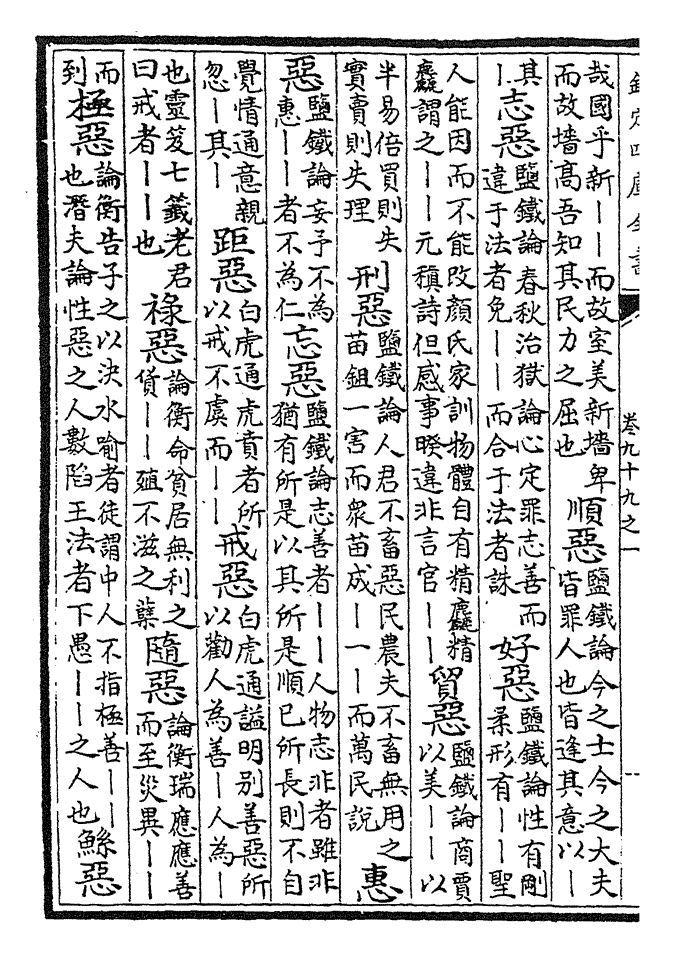 欽定四庫全書 卷九十九之一
哉國乎新丨丨而故室美新墻卑而故墻髙吾知其民力之屈也 順惡 鹽鐵論今之士今之大夫皆罪人也皆逢其意以丨
其丨 志惡 鹽鐵論春秋治獄論心定罪志善而違于法者免丨丨而合于法者誅 好惡 鹽鐵論性有剛柔形有丨丨聖
人能因而不能改顏氏家訓物體自有精麤精麤謂之丨丨元稹詩但感事暌違非言官丨丨 貿惡 鹽鐵論商賈以美丨丨以
半易倍買則失實賣則失理 刑惡 鹽鐵論人君不畜惡民農夫不畜無用之苗鉏一害而衆苗成丨一丨而萬民說 惠
惡 鹽鐵論妄予不為惠丨丨者不為仁 忘惡 鹽鐵論志善者丨丨人物志非者雖非猶有所是以其所是順已所長則不自
覺情通意親忽丨其丨 距惡 白虎通虎賁者所以戒不虞而丨丨 戒惡 白虎通諡明别善惡所以勸人為善丨人為丨
也靈笈七籤老君曰戒者丨丨也 祿惡 論衡命貧居無利之貨丨丨殖不滋之蘖 隨惡 論衡瑞應應善而至災異丨丨
而到 極惡 論衡告子之以決水喻者徒謂中人不指極善丨丨也潛夫論性惡之人數陷王法者下愚丨丨之人也 鯀惡